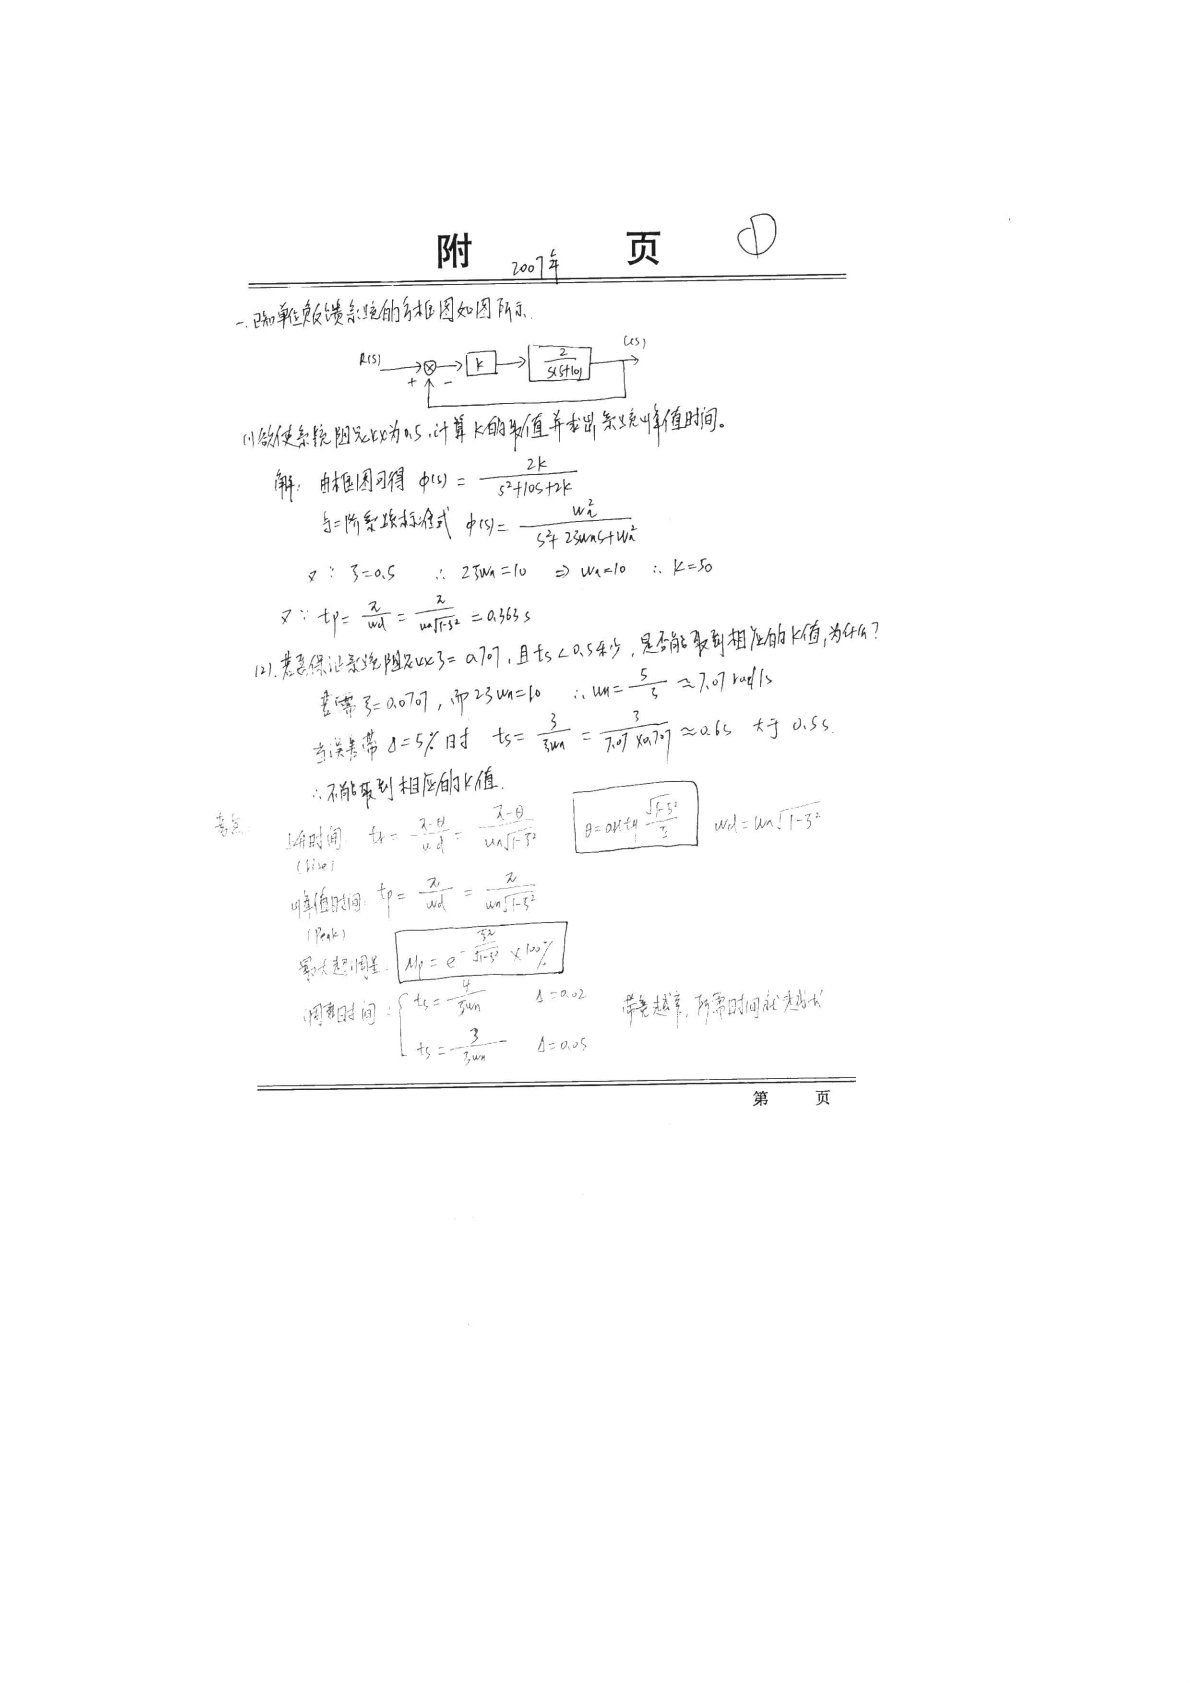 附 页 ①
2007年
一.已知单位负反馈系统的方框图如图所示.
R(S) + - K 2/s(s+10) C(S)
(1)欲使系统阻尼比为0.5,计算K的取值并求出系统峰值时间。
解: 由框图可得 φ(s) = 2k/(s²+10s+2k)
与二阶系统标准式 φ(s) = ωn²/(s²+2ξωns+ωn²)
又∵ ξ=0.5 ∴ 2ξωn=10 ⇒ ωn=10 ∴ K=50
又∵ tp = π/ωd = π/(ωn√(1-ξ²)) = 0.363s
(2).若要保证系统阻尼比ξ=0.707,且ts<0.5秒,是否能取到相应的K值,为什么?
若需ξ=0.0707,而2ξωn=10 ∴ωn=5/ξ≈7.07 rad/s
当误差带Δ=5%时 ts = 3/(ξωn) = 3/(7.07×0.707) ≈0.6s 大于0.5s.
∴不能取到相应的K值.
考点:
上升时间: tr = (π-θ)/ωd = (π-θ)/(ωn√(1-ξ²)) θ=arctg √(1-ξ²)/ξ ωd=ωn√(1-ξ²)
峰值时间: tp = π/ωd = π/(ωn√(1-ξ²))
(Peak)
最大超调量. Mp = e^(-ξπ/√(1-ξ²)) ×100%
调整时间: { ts = 4/(ξωn) Δ=0.02 带宽越窄,所需时间就越长
ts = 3/(ξωn) Δ=0.05
第 页